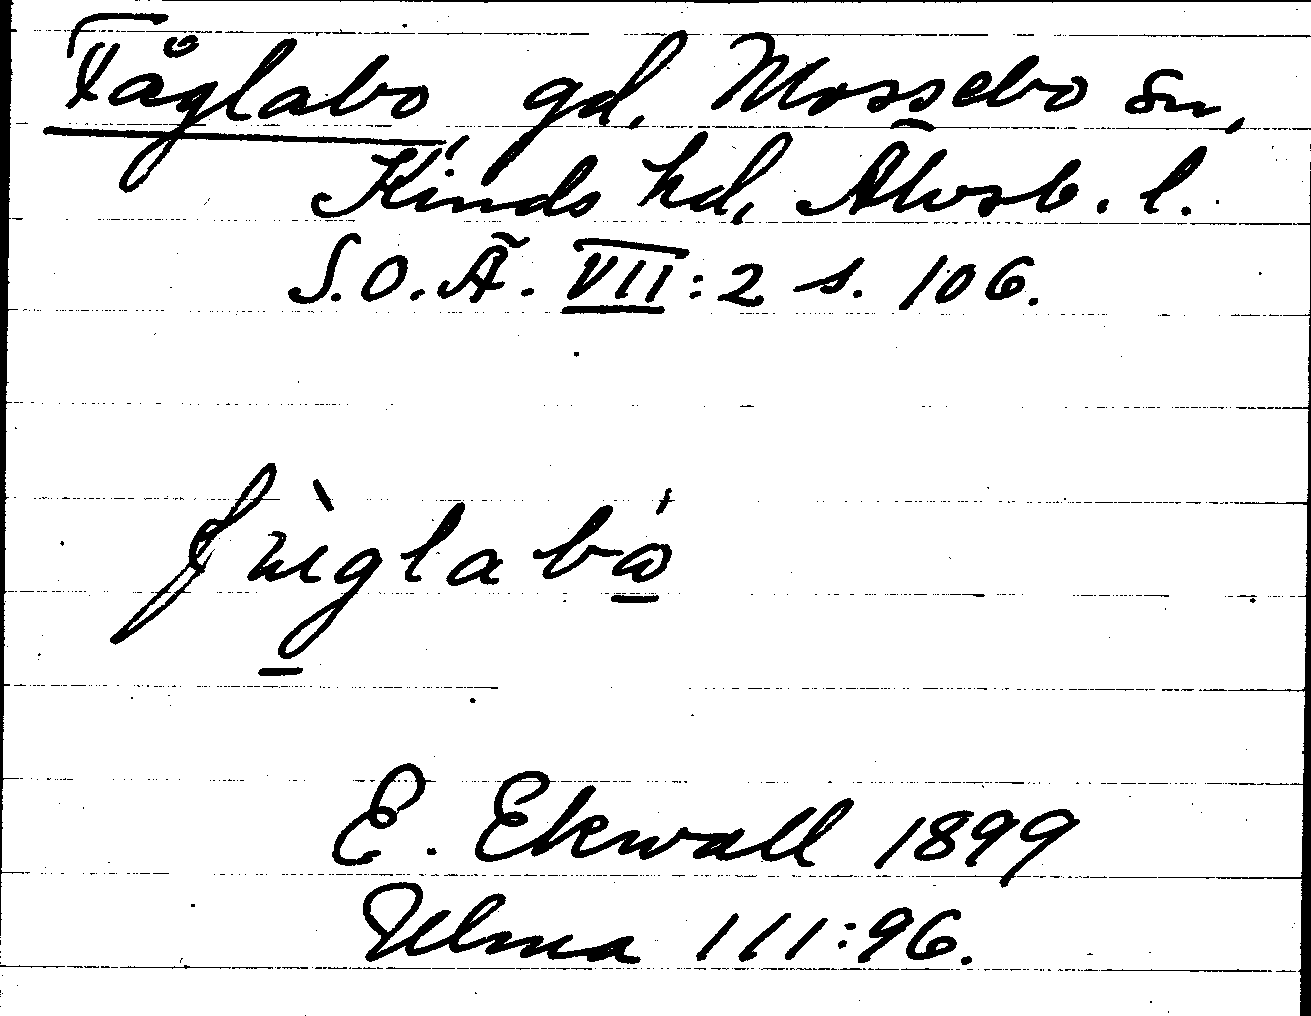 Fåglabo, gd, Mossebo sn,
Kinds hd, Älvsb. l.
S.O.Ä. VII:2 s. 106.
E. Ekwall 1899
Ulma 111:96.